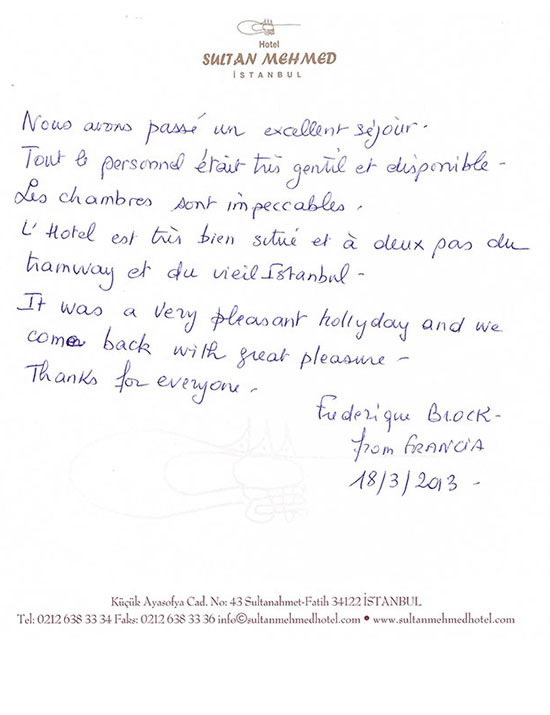 Hotel
SULTAN MEHMED
İSTANBUL
Nous avons passé un excellent séjour.
Tout le personnel était très gentil et disponible -
Les chambres sont impeccables.
L'Hotel est très bien situé et à deux pas du
tramway et du vieil Istanbul -
It was a very pleasant hollyday and we
come back with great pleasure -
Thanks for everyone.
Frederique BLOCK -
from FRANCIA
18/3/2013 -
Küçük Ayasofya Cad. No: 43 Sultanahmet-Fatih 34122 İSTANBUL
Tel: 0212 638 33 34 Faks: 0212 638 33 36 info©sultanmehmedhotel.com • www.sultanmehmedhotel.com